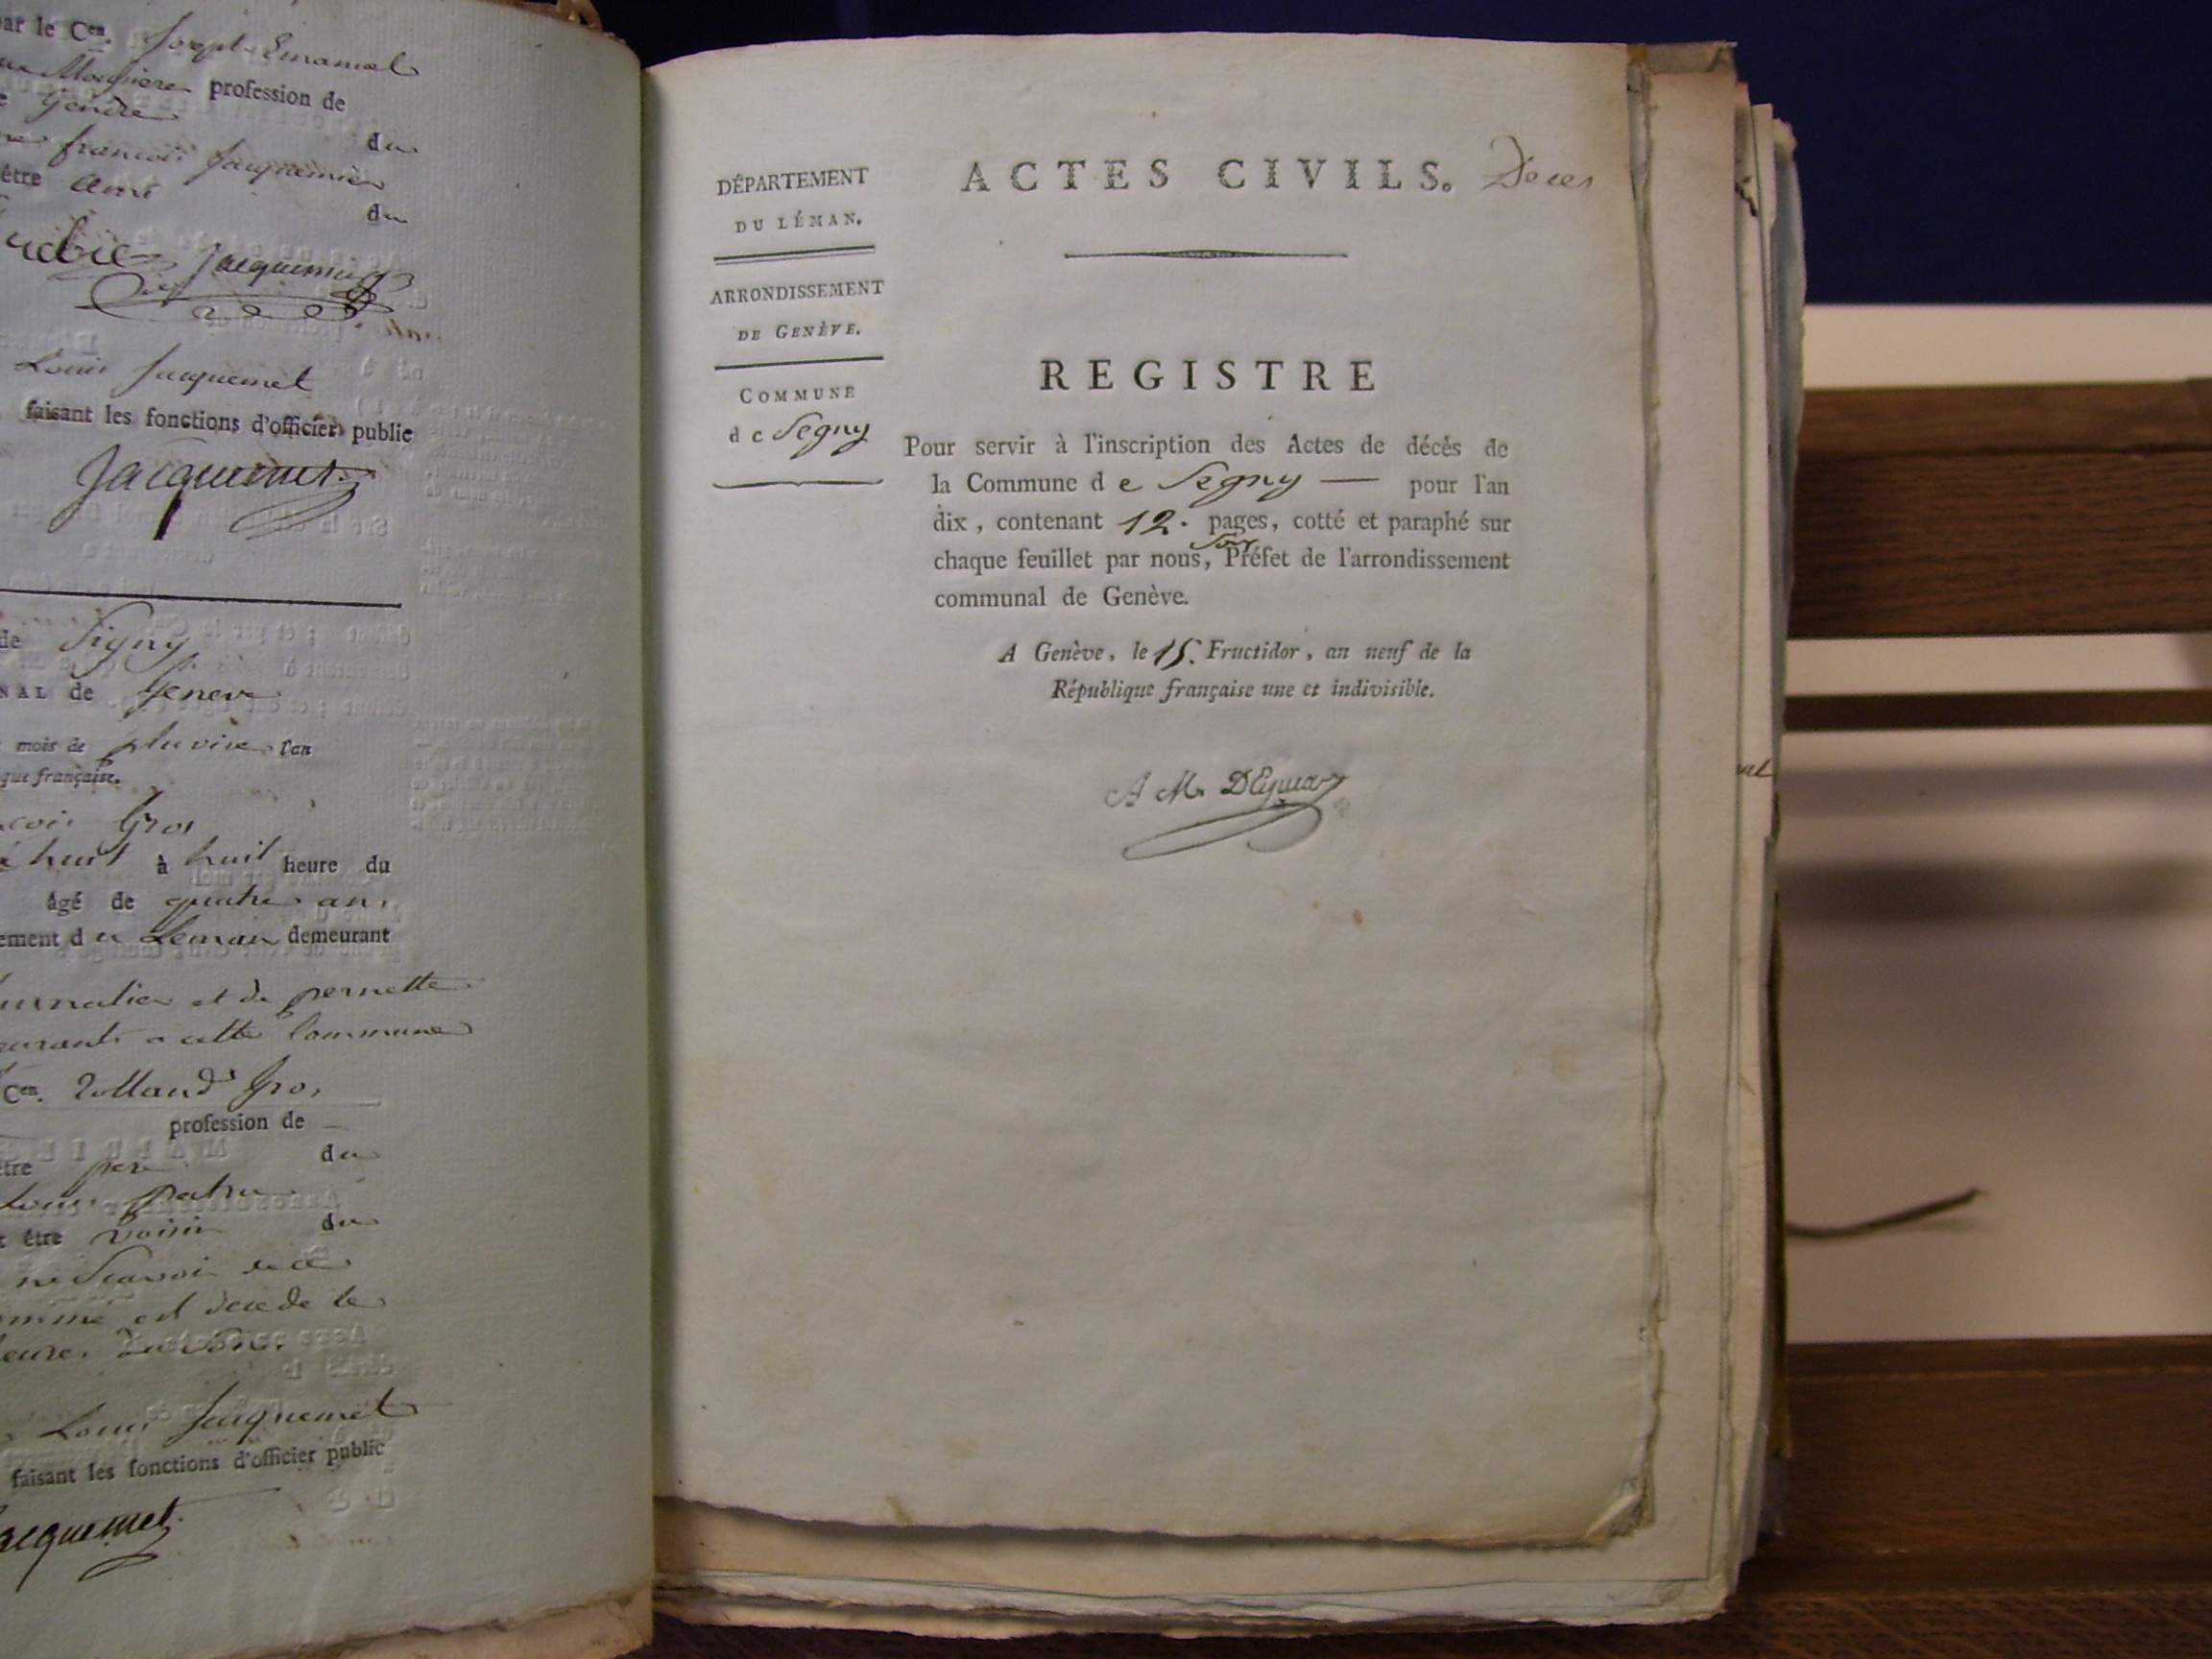 par le Cen. Joseph Emanuel
profession de
gendre
du
francois Jacquemier
être ami
du
Jacquemier
Louis Jacquemet
faisant les fonctions d'officier public
Jacquemet
de Signy
NAL de Geneve
mois de pluviose l'an
que française.
Gros
huit à huit heure du
âgé de quatre ans
ement du Leman demeurant
et de pernette
a cette Commune
Cen. Rolland Gros
profession de
être pere du
Louis
être voisin du
est decede le
Louis Jacquemet
faisant les fonctions d'officier public
Jacquemet
DÉPARTEMENT
DU LÉMAN.
ARRONDISSEMENT
DE GENÈVE.
COMMUNE
de Segny
ACTES CIVILS. Deces
REGISTRE
Pour servir à l'inscription des Actes de décès de
la Commune de Segny — pour l'an
dix, contenant 12. pages, cotté et paraphé sur
chaque feuillet par nous, Sous Préfet de l'arrondissement
communal de Genève.
A Genève, le 15. Fructidor, an neuf de la
République française une et indivisible.
A M. DEymar